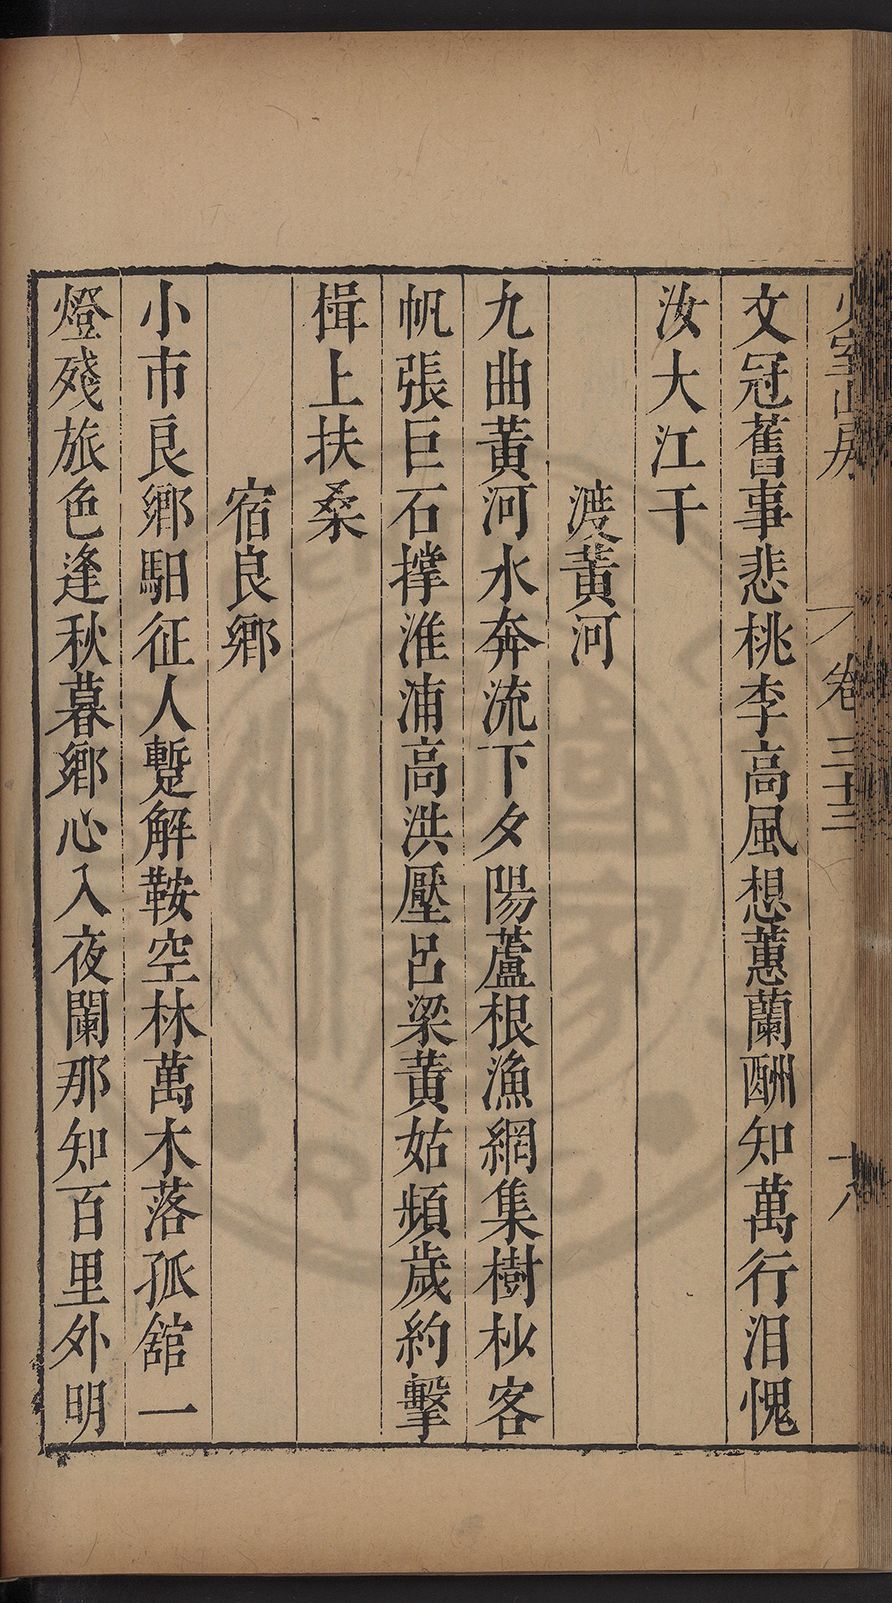 少室山房 卷三十三 十八
文冠舊事悲桃李高風想蕙蘭酬知萬行泪愧
汝大江干
渡黃河
九曲黃河水奔流下夕陽蘆根漁網集樹杪客
帆張巨石撑淮浦高洪壓呂梁黃姑頻歲約擊
楫上扶桑
宿良鄉
小市良鄉馹征人蹔解鞍空林萬木落孤舘一
燈殘旅色逢秋暮鄉心入夜闌那知百里外明